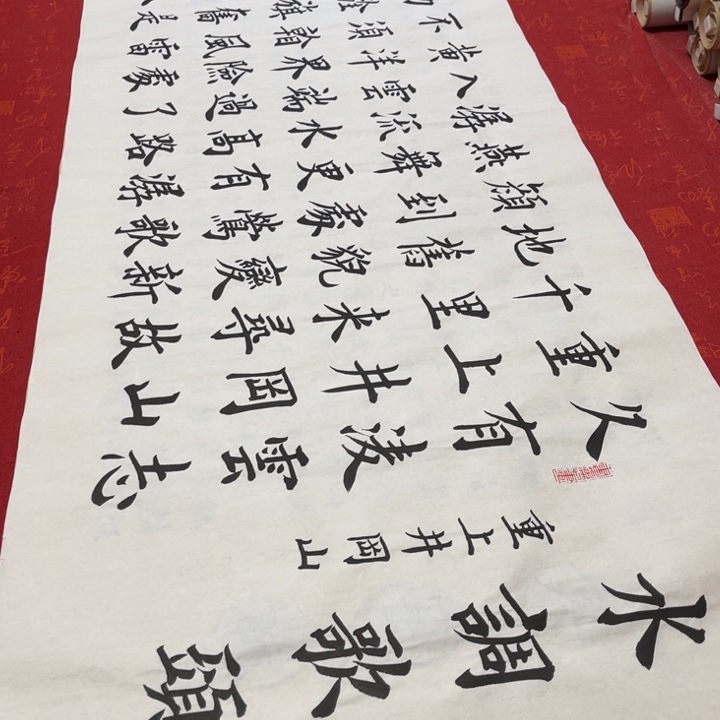 水調歌頭
重上井岡山
久有凌雲志
重上井岡山
千里来尋故
地舊貌變新
顔到處鶯歌
燕舞更有潺
潺流水高路
入雲端過了
黄洋界險處
不須風雷
旗奮是